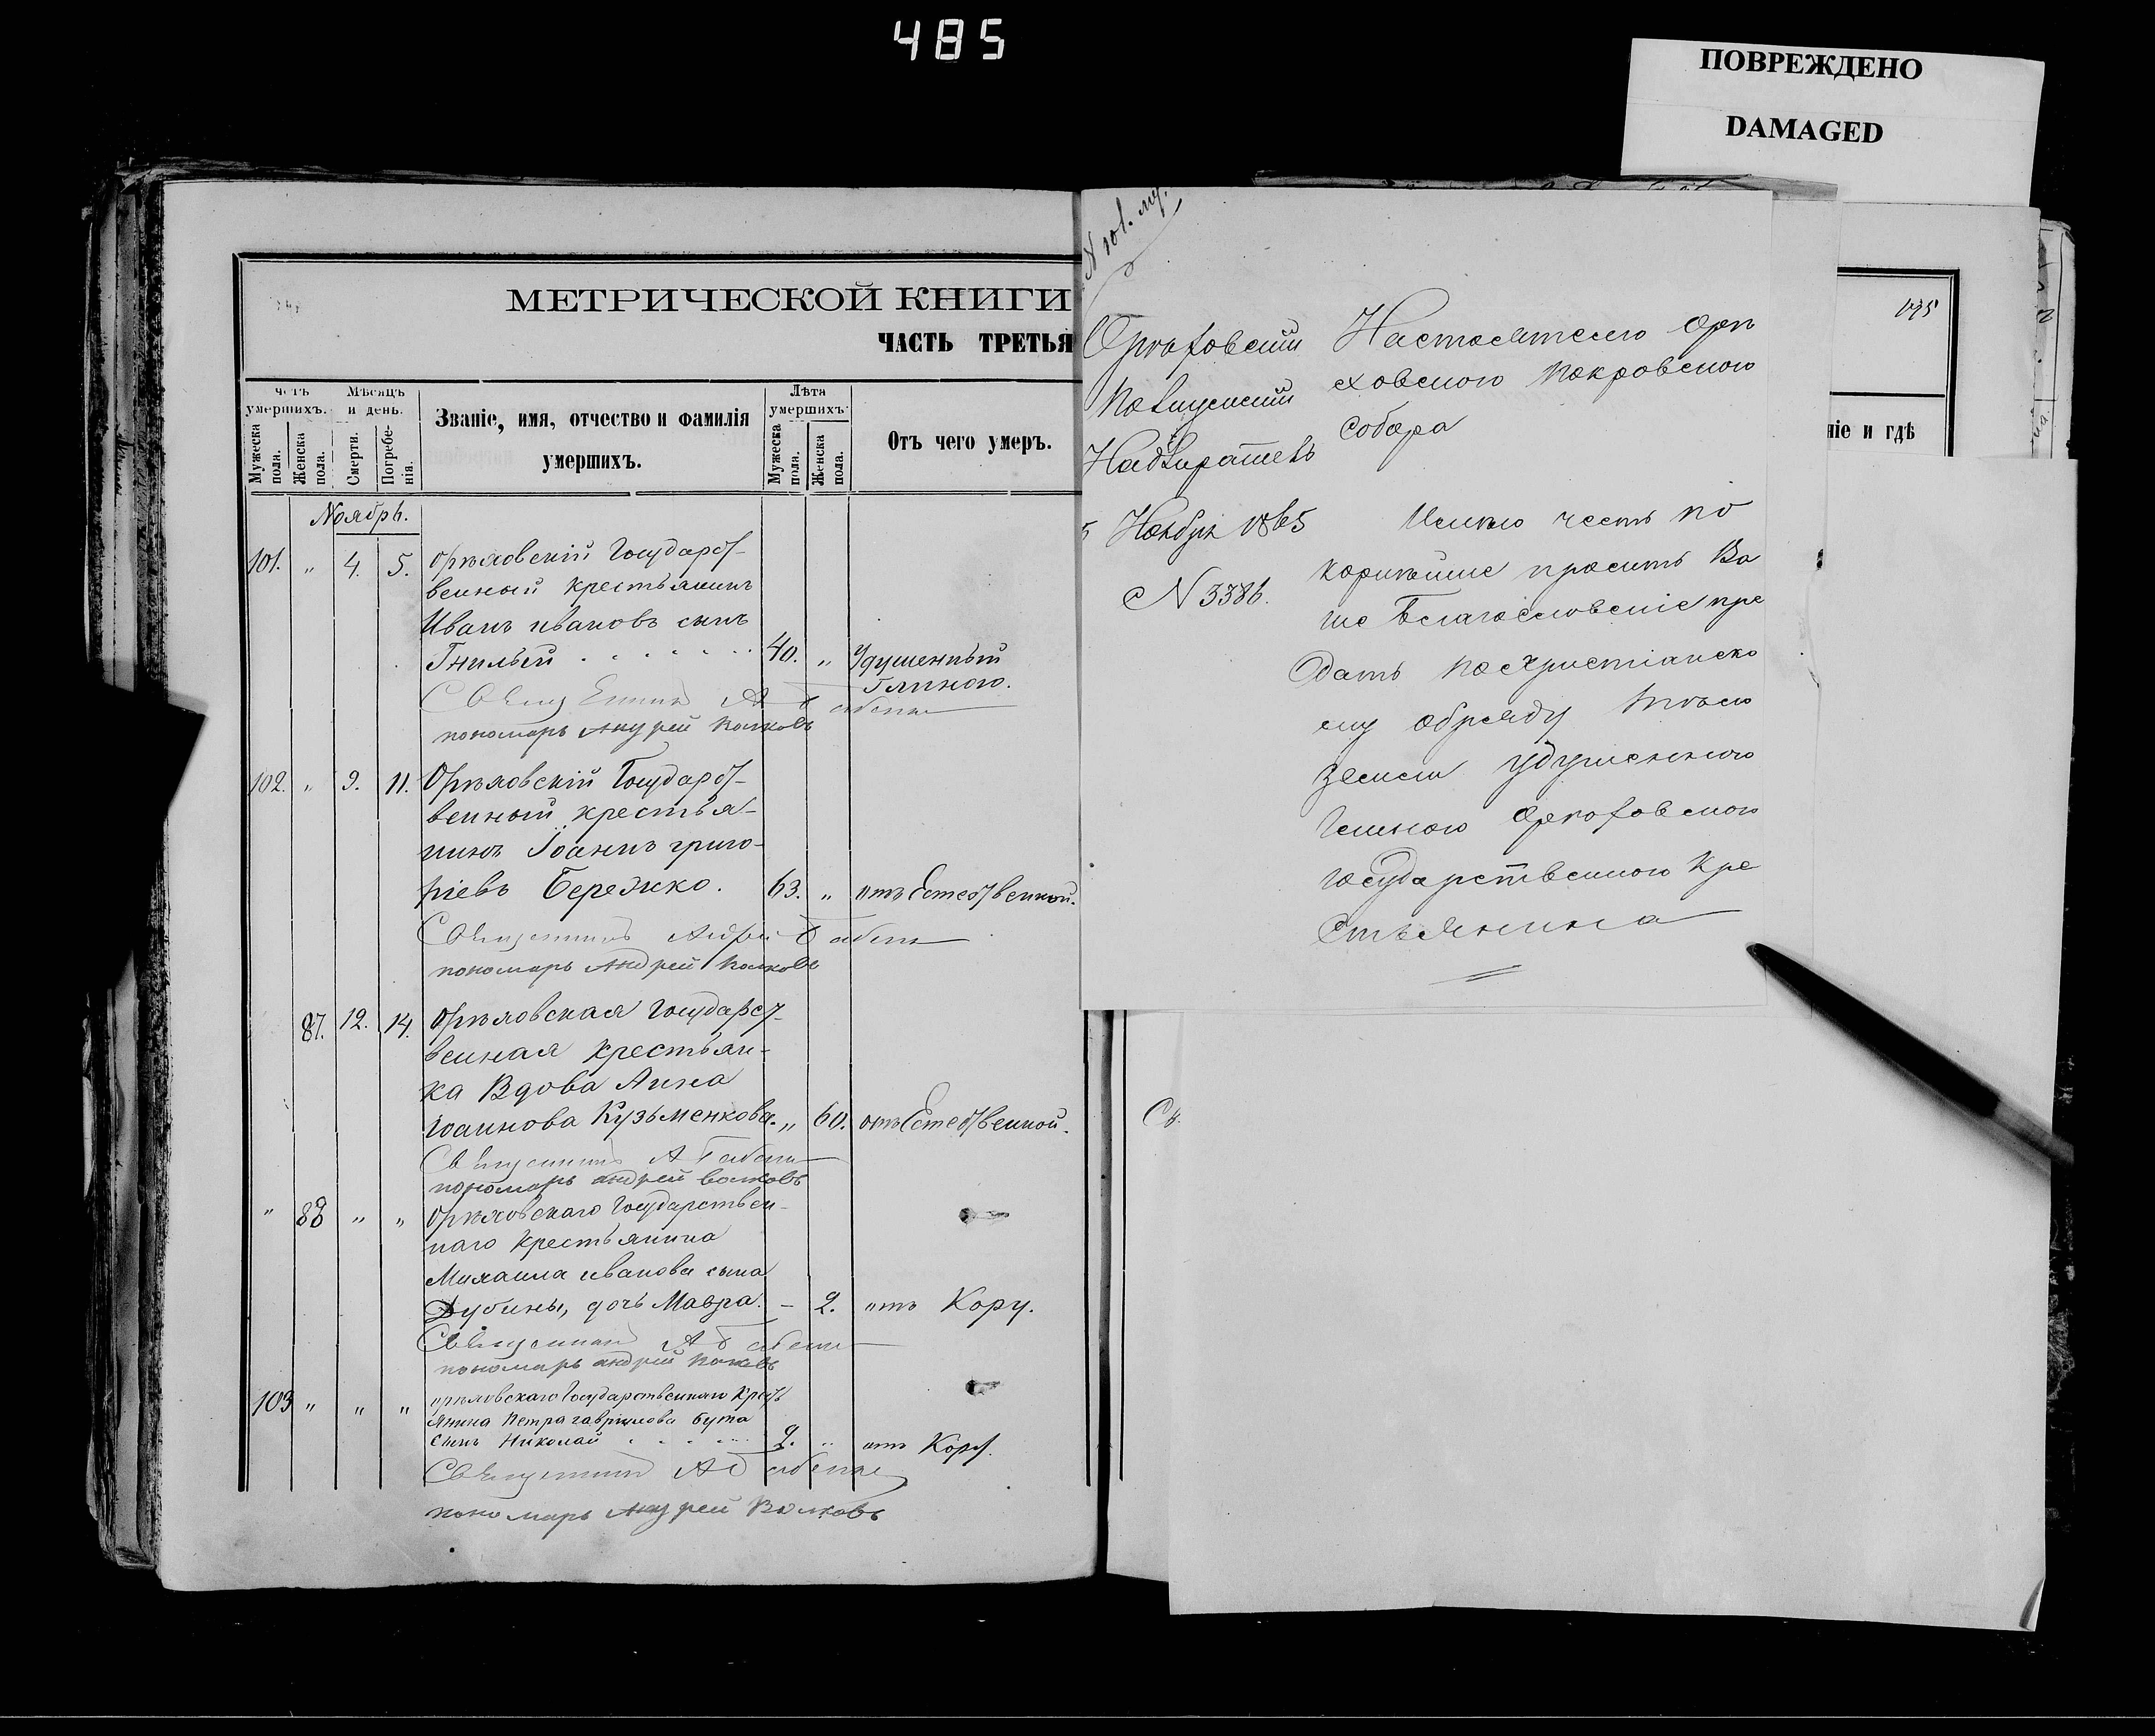 485
ПОВРЕЖДЕНО
DAMAGED
МЕТРИЧЕСКОЙ КНИГИ
ЧАСТЬ ТРЕТЬЯ
четъ умершихъ.
Мужеска пола.
Женска пола.
Мѣсяцъ и день.
Смерти.
Погребенія.
Званіе, имя, отчество и фамилія умершихъ.
Лѣта умершихъ.
Мужеска пола.
Женска пола.
Отъ чего умеръ.
Ноябрь.
101. " 4. 5. Орѣховскій Государст-
венный крестьянинъ
Иванъ Ивановъ сынъ
Гнилый 40. " Удушенный
глиною.
Священникъ
пономарь Андрей Волковъ
102. " 9. 11. Орѣховскій Государст-
венный крестья-
нинъ Іоаннъ Григо-
ріевъ Бережко. 63. " отъ Естественной.
Священникъ Андрей
пономарь Андрей Волковъ
87. 12. 14. Орѣховская Государст-
венная крестьян-
ка Вдова Анна
Іоаннова Кузьменкова. " 60. отъ Естественной.
Священникъ А
пономарь Андрей Волковъ
" 88 " " Орѣховскаго Государствен-
наго крестьянина
Михаила Иванова сына
Дубины, дочь Мавра. - 2. отъ Кору.
Священникъ А
пономарь Андрей Волковъ
103 " " " Орѣховскаго Государственнаго Крест
янина Петра Гавріилова Бута
сынъ Николай 2. " отъ Кору.
Священникъ А
пономарь Андрей Волковъ
N 101. му.
Орѣховскій
Надзиратель
5 Ноября 1865
N 3386.
Настоятелю Орѣ
ховского Покровского
собора
Имѣю честь по
корнѣйше просить Ва
ше Благословеніе пре
дать по христіанско
му обряду тѣло
земли удушенного
глиною Орѣховского
государственного кре
стьянина
195
ніе и гдѣ
Св.